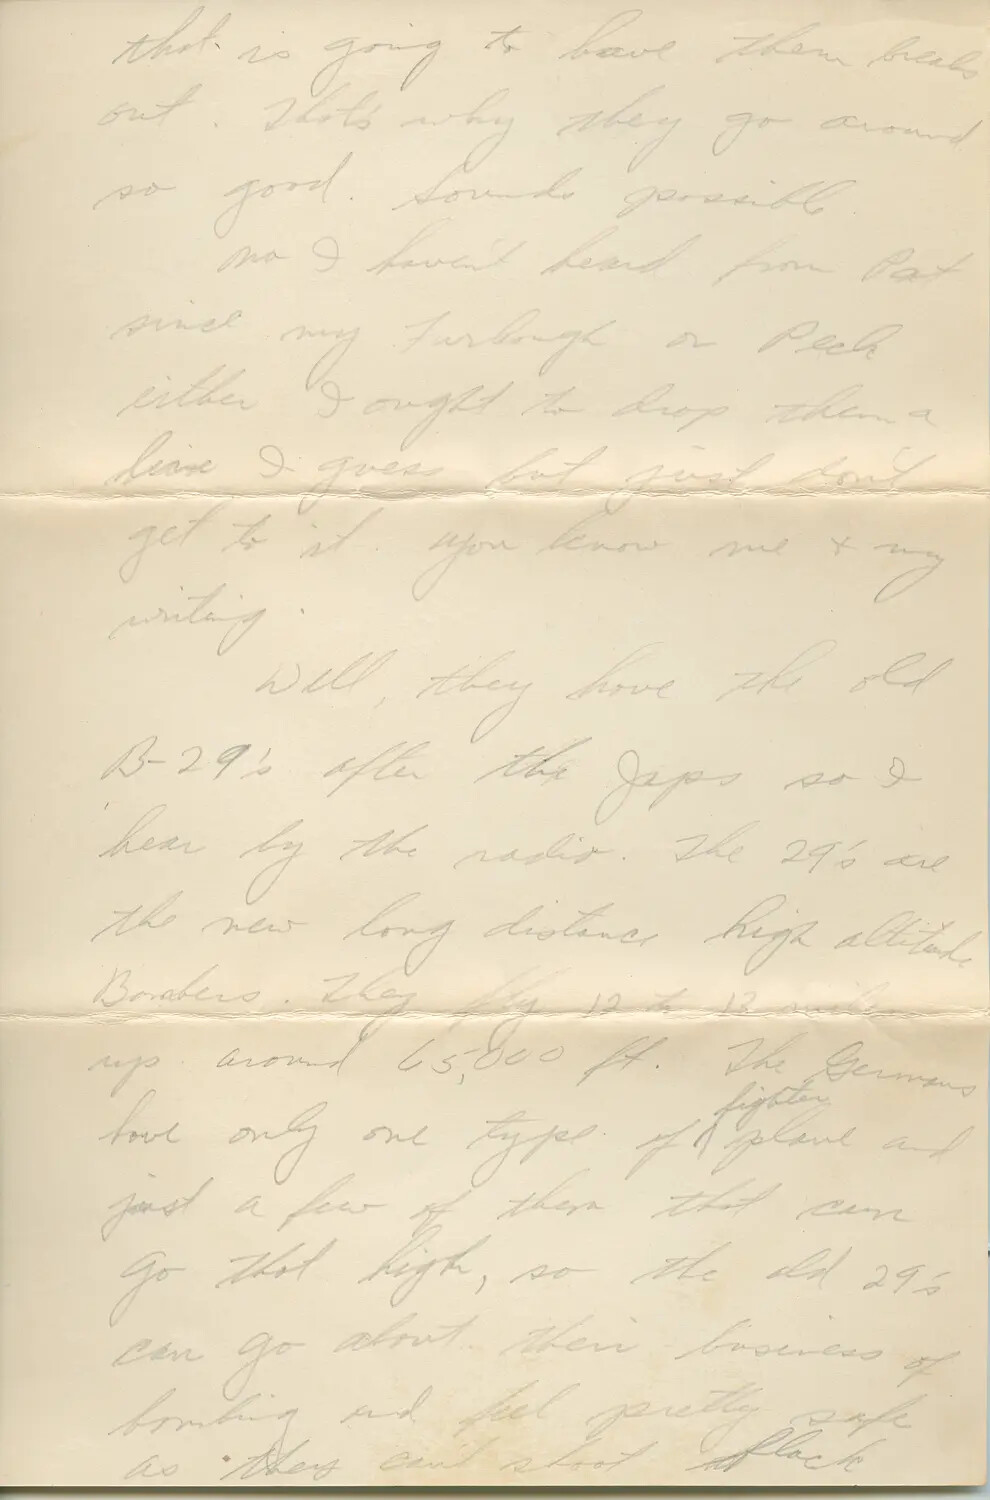 that is going to have them breaks
out. That's why they go around
so good. Sounds possible.
no I haven't heard from Pat
since my Furlough or Peck
either I ought to drop them a
line I guess but just don't
get to it. you know me + my
writing.
Well, they have the old
B-29's after the Japs so I
hear by the radio. The 29's are
the new long distance high altitude
Bombers. They fly 12 to 13 miles
up around 65,000 ft. The Germans
have only one type of fighter plane and
just a few of them that can
go that high, so the old 29's
can go about their business of
bombing and feel pretty safe
as they can't shoot flack